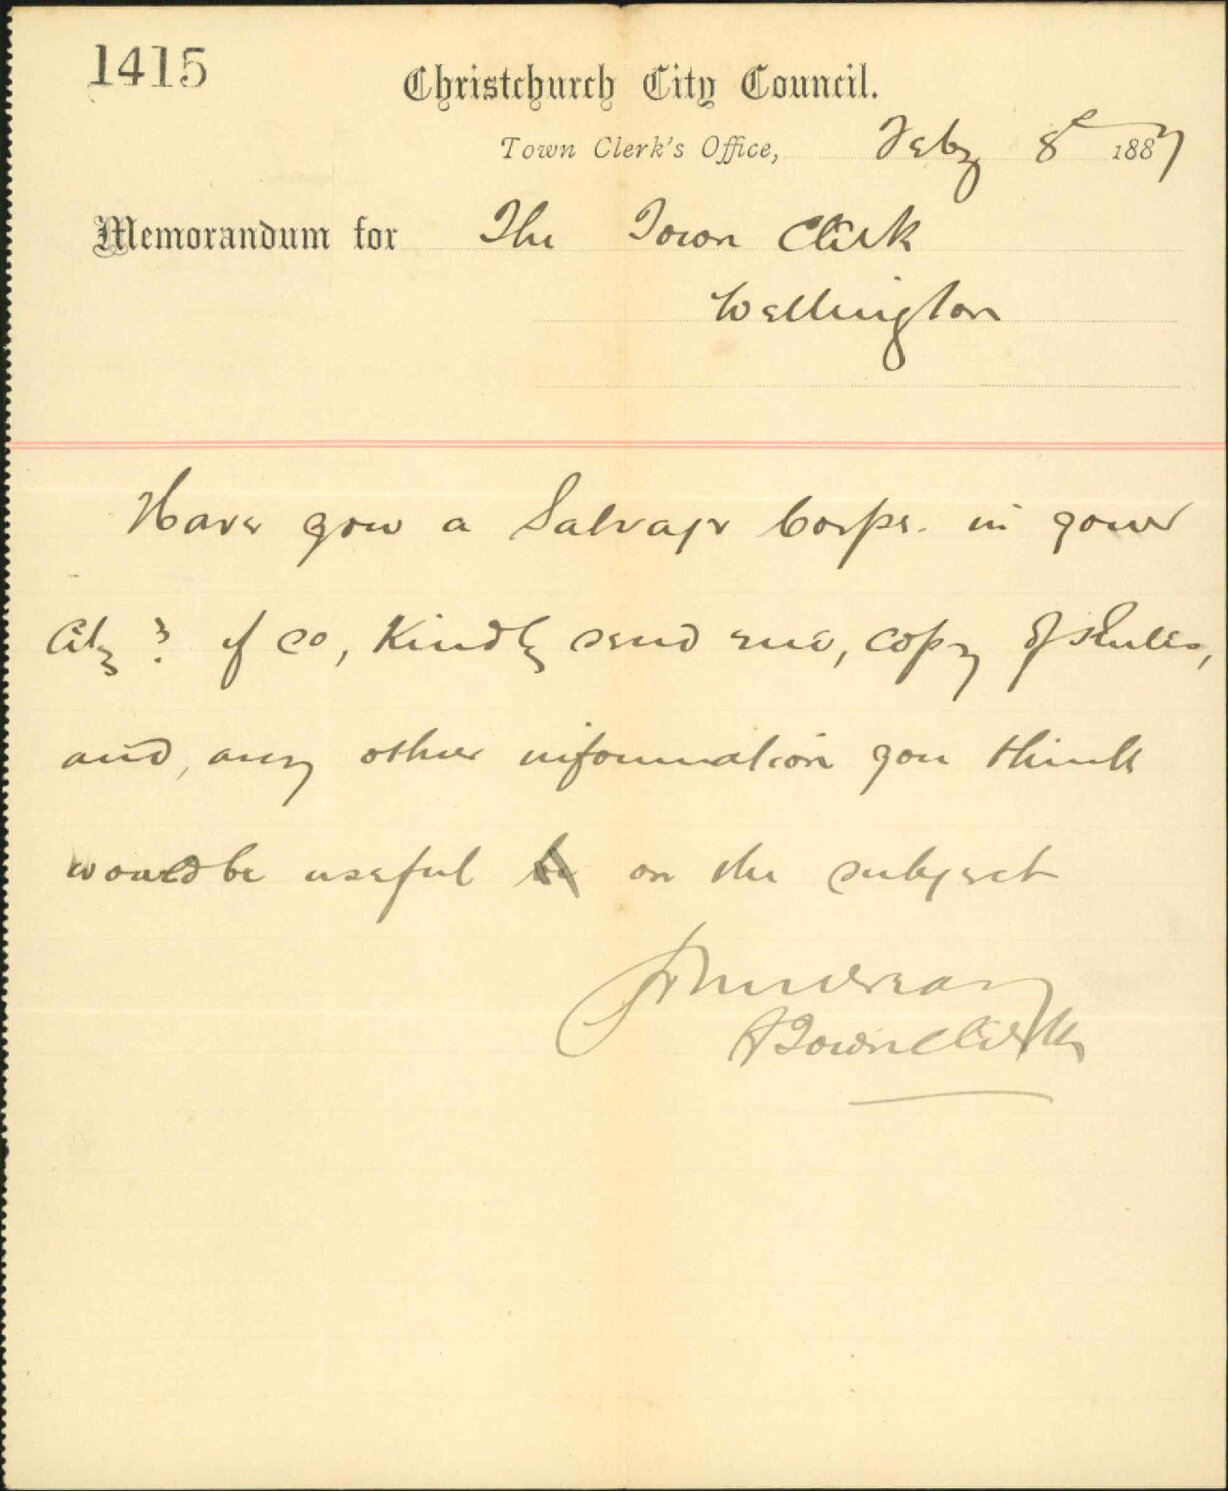 1415
Christchurch City Council.
Town Clerk's Office, Feby 8th 1887
Memorandum for The Town Clerk
Wellington
Have you a Salvage Corps. in your
City? if so, Kindly send me, copy of Rules,
and, any other information you think
would be useful on the subject
Town Clerk